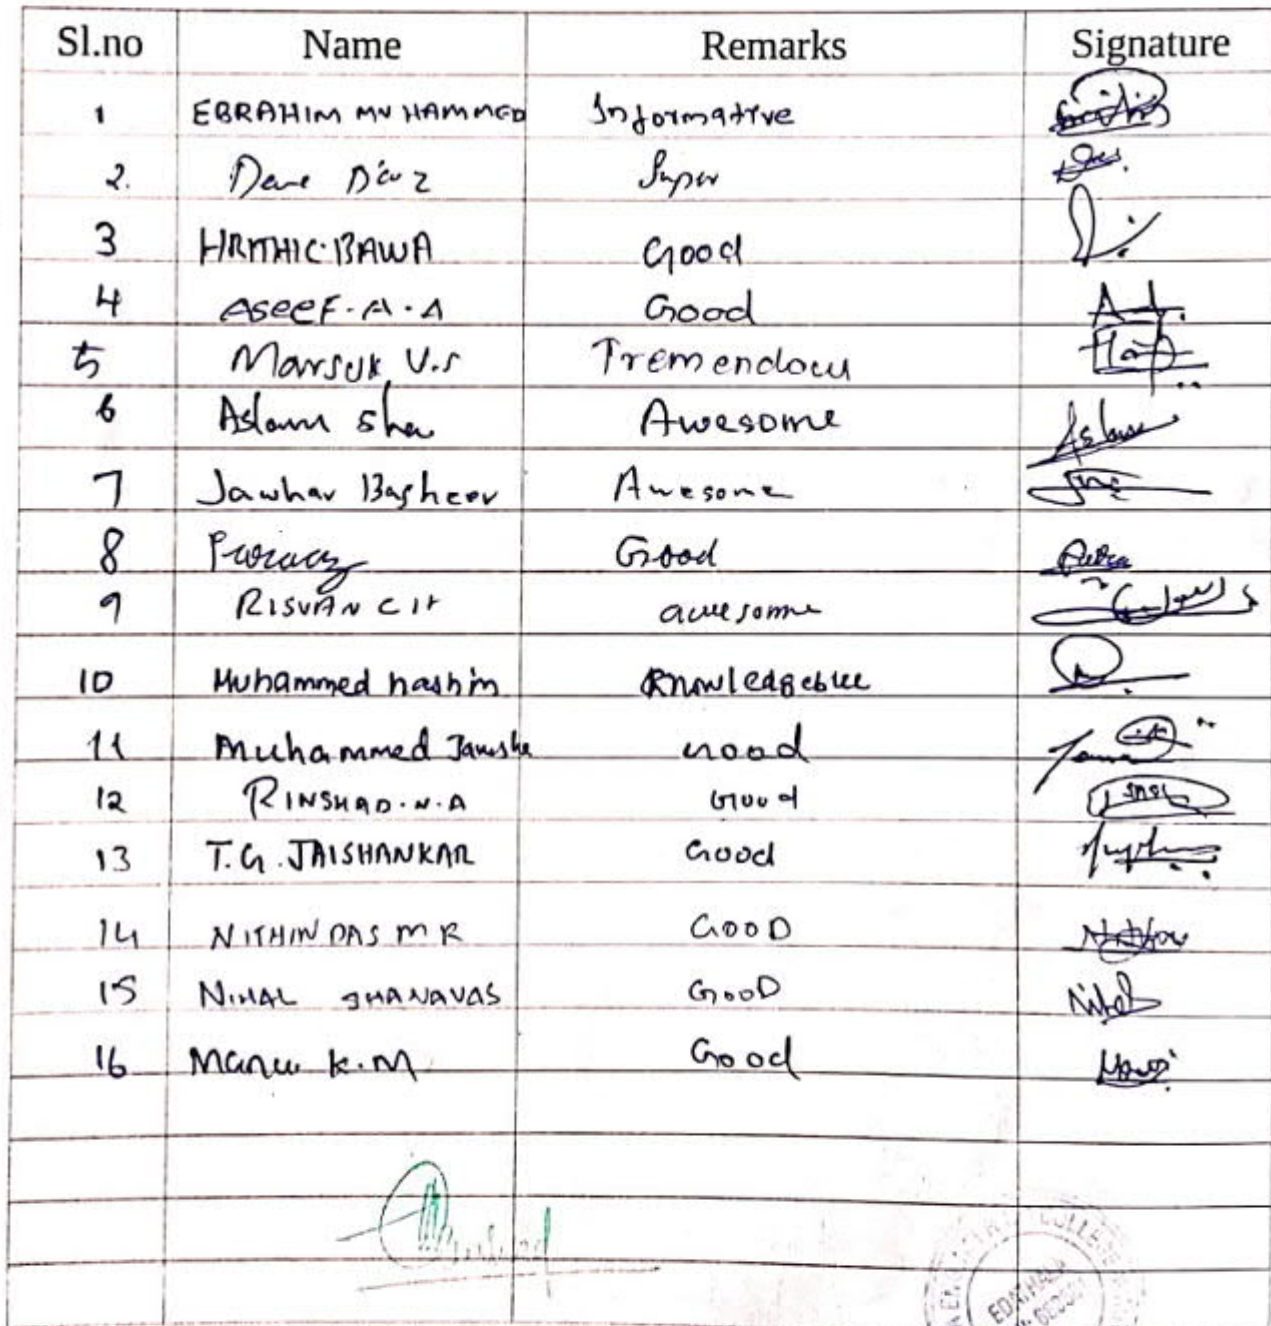 Sl.no Name Remarks Signature
1 EBRAHIM MUHAMMED Informative
2. Dave Super
3 HRITHIC BAWA Good
4 ASeeF. A. A Good
5 Marsuk V.S Tremendous
6 Aslam Sha Awesome Aslam
7 Jawhar Basheer Awesome
8 Good
9 RISVAN C H awesome
10 Muhammed hashim Knowledgeble
11 Muhammed Good
12 RINSHAD. N. A Good
13 T. G. JAISHANKAR Good
14 NITHIN DAS M R GOOD
15 NIHAL SHANAVAS GOOD Nihal
16 Manu K. M Good
COLLEGE
EDATHALA